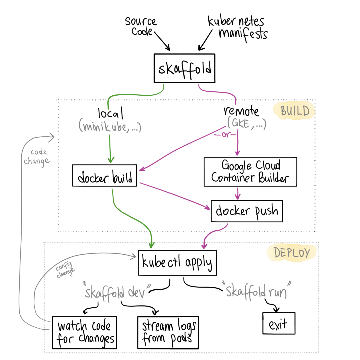 source
code
kubernetes
manifests
skaffold
local
(minikube,...)
remote
(GKE,...)
-or-
BUILD
code
change
docker build
Google Cloud
Container Builder
docker push
DEPLOY
config
change
kubectl apply
"skaffold dev"
"skaffold run"
watch code
for changes
stream logs
from pods
exit